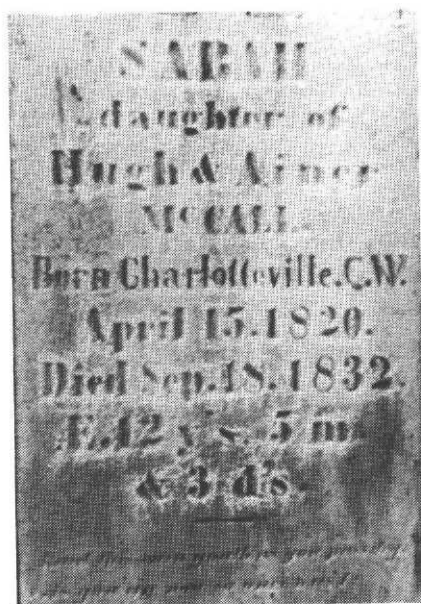 SARAH
daughter of
Hugh & Ainer
McCALL
Born Charlotteville. C.W.
April 15. 1820.
Died Sep. 18. 1832.
Æ. 12 y's. 5 m
& 3 d's.
as you pass by